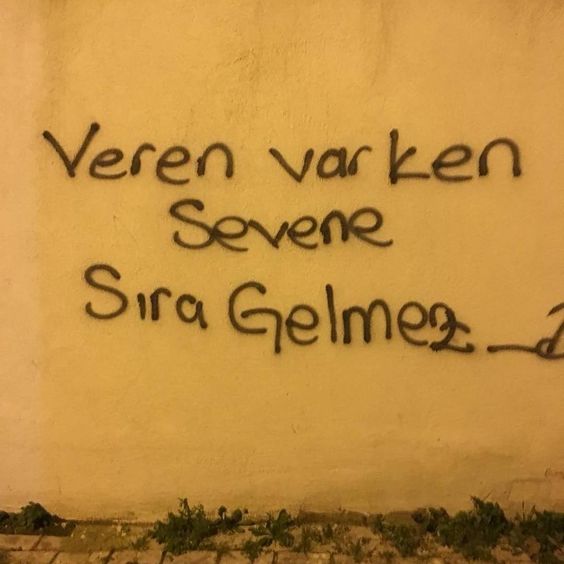 Veren varken
Sevene
Sıra Gelmez